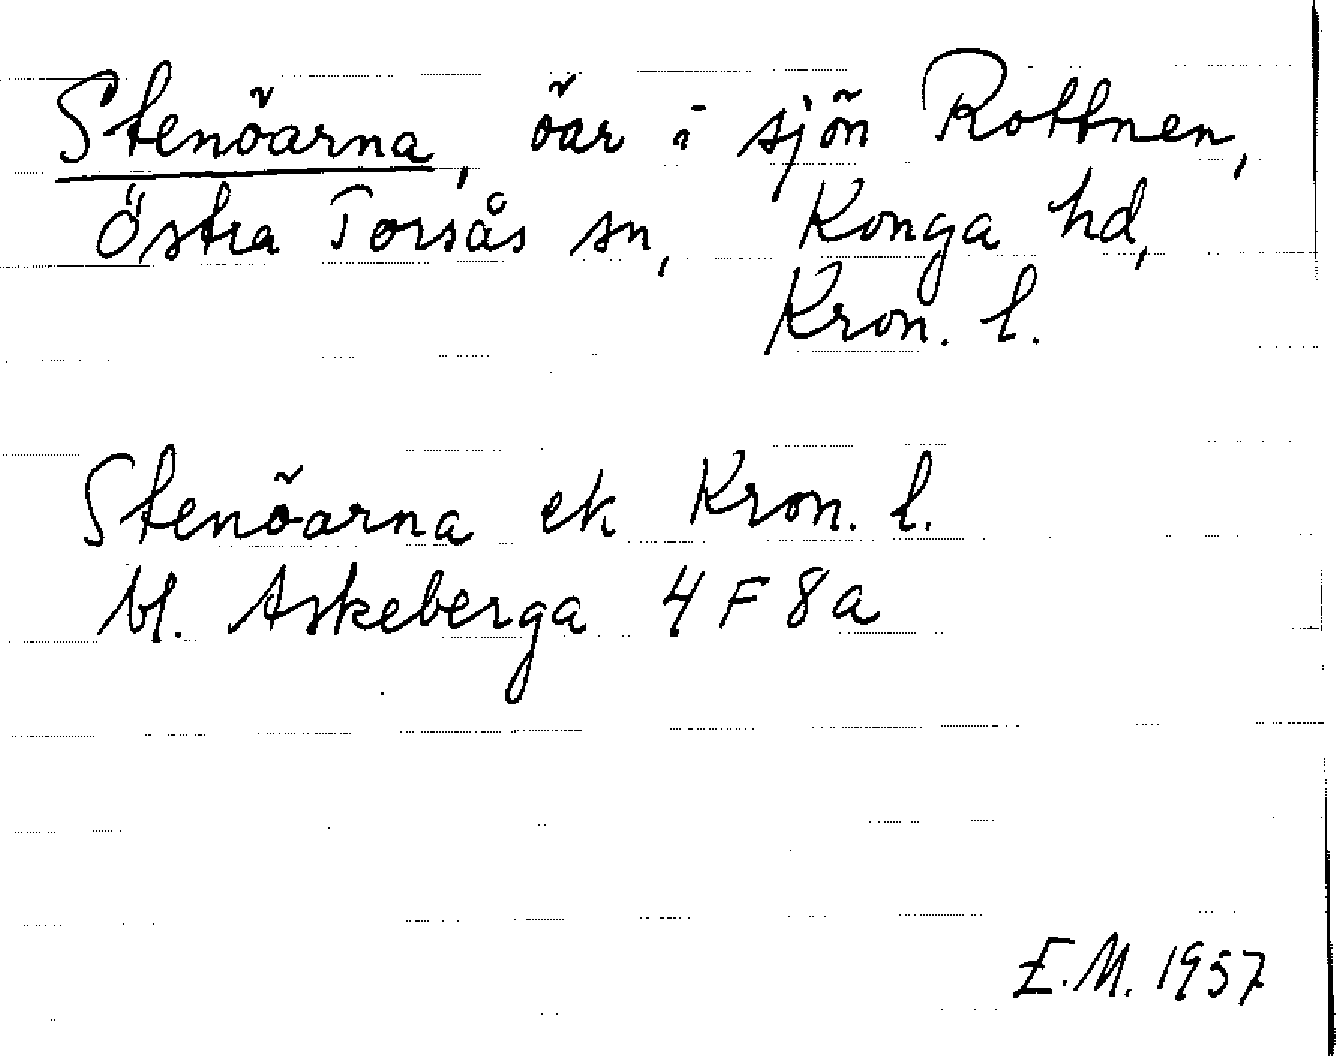 Stenöarna, öar i sjön Rottnen,
Östra Torsås sn, Konga hd,
Kron. l.
Stenöarna ek Kron. l.
bl. Askeberga 4 F 8 a
E.M. 1957